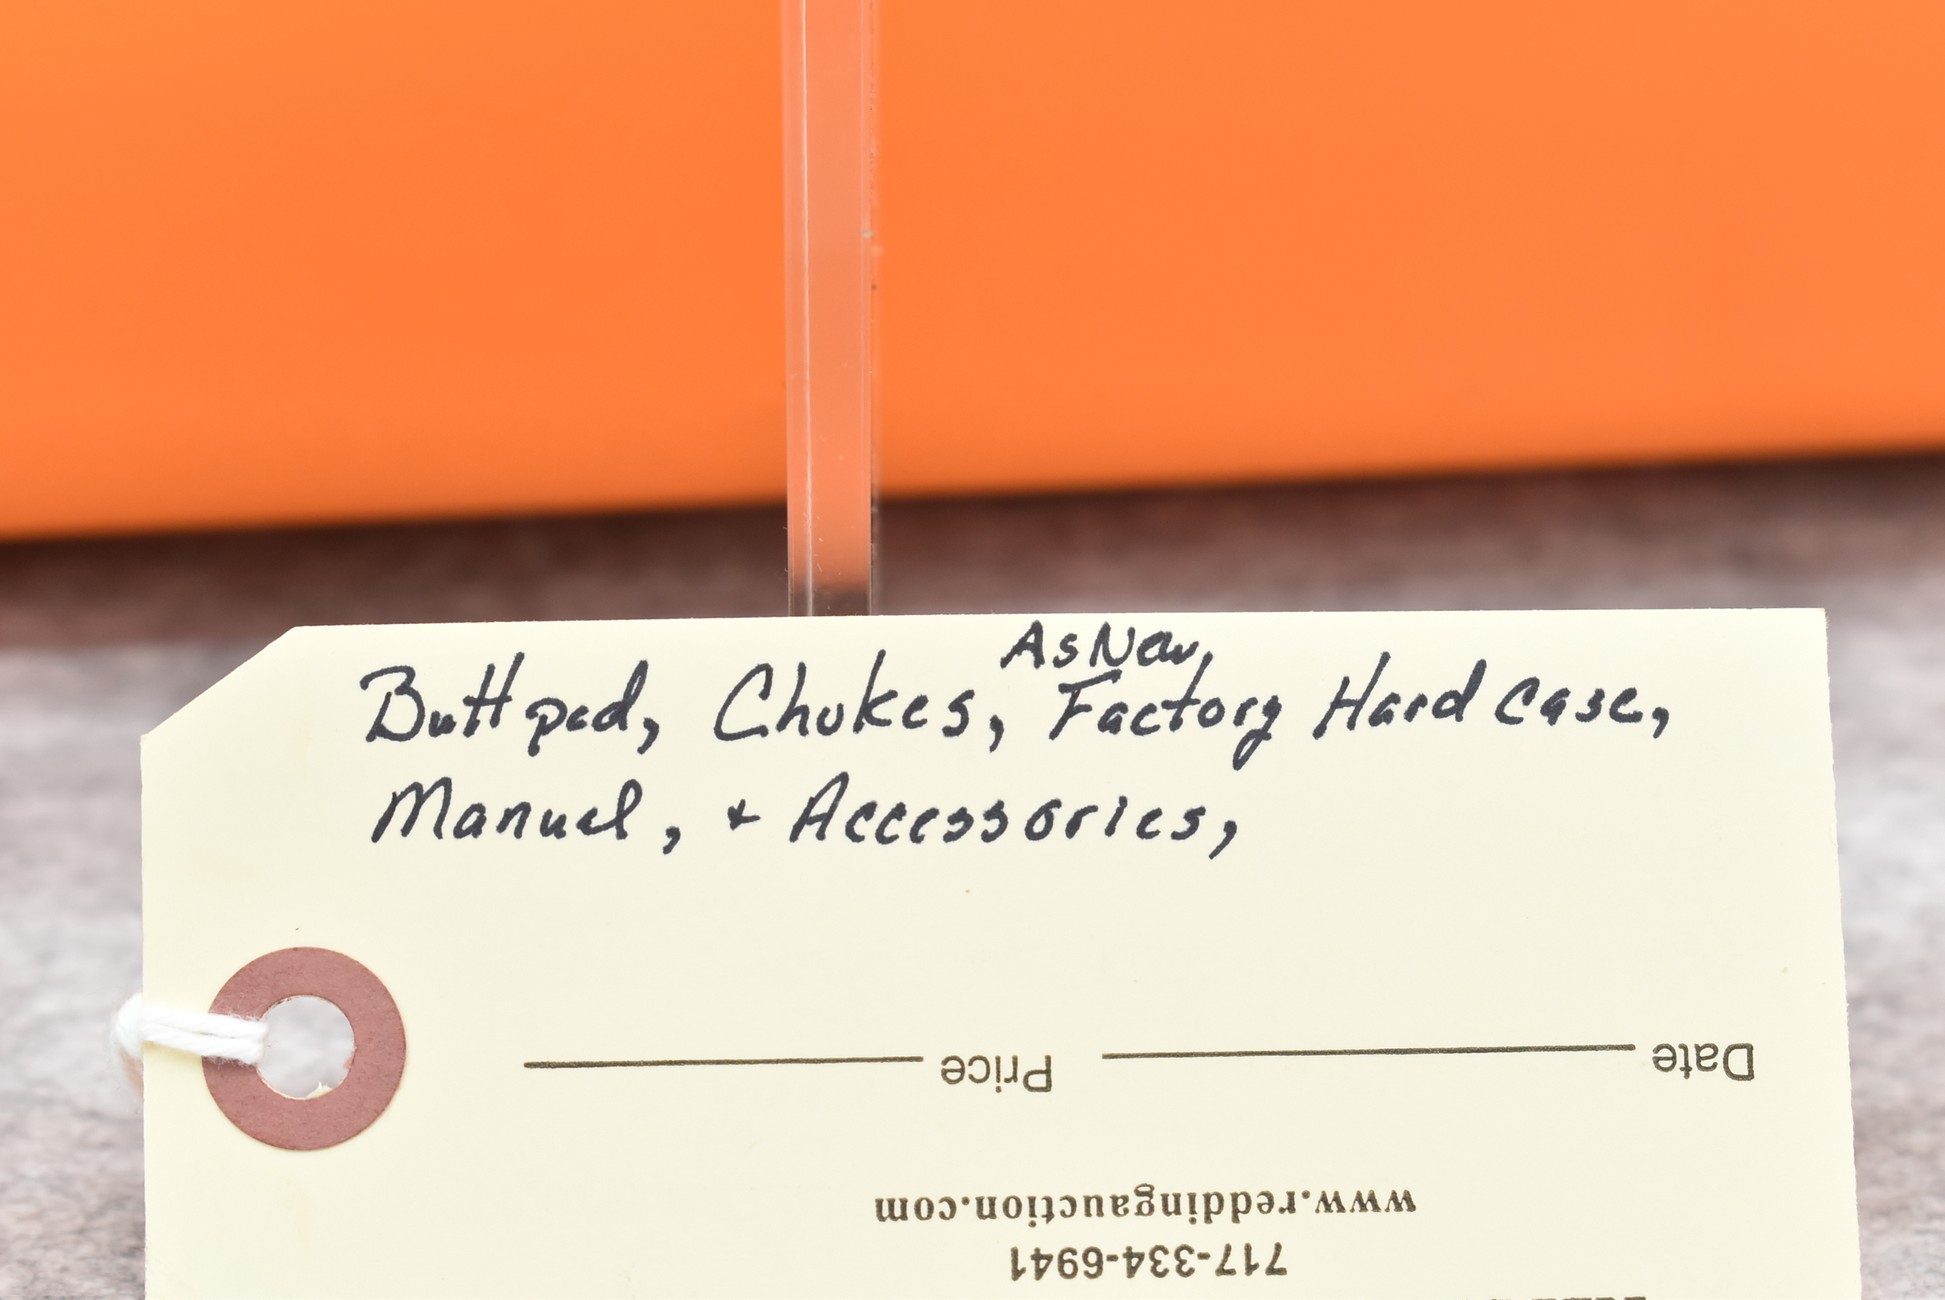 As New,
Buttpad, Chokes, Factory Hard case,
Manuel, + Accessories,
Date Price
www.reddingauction.com
717-334-6941